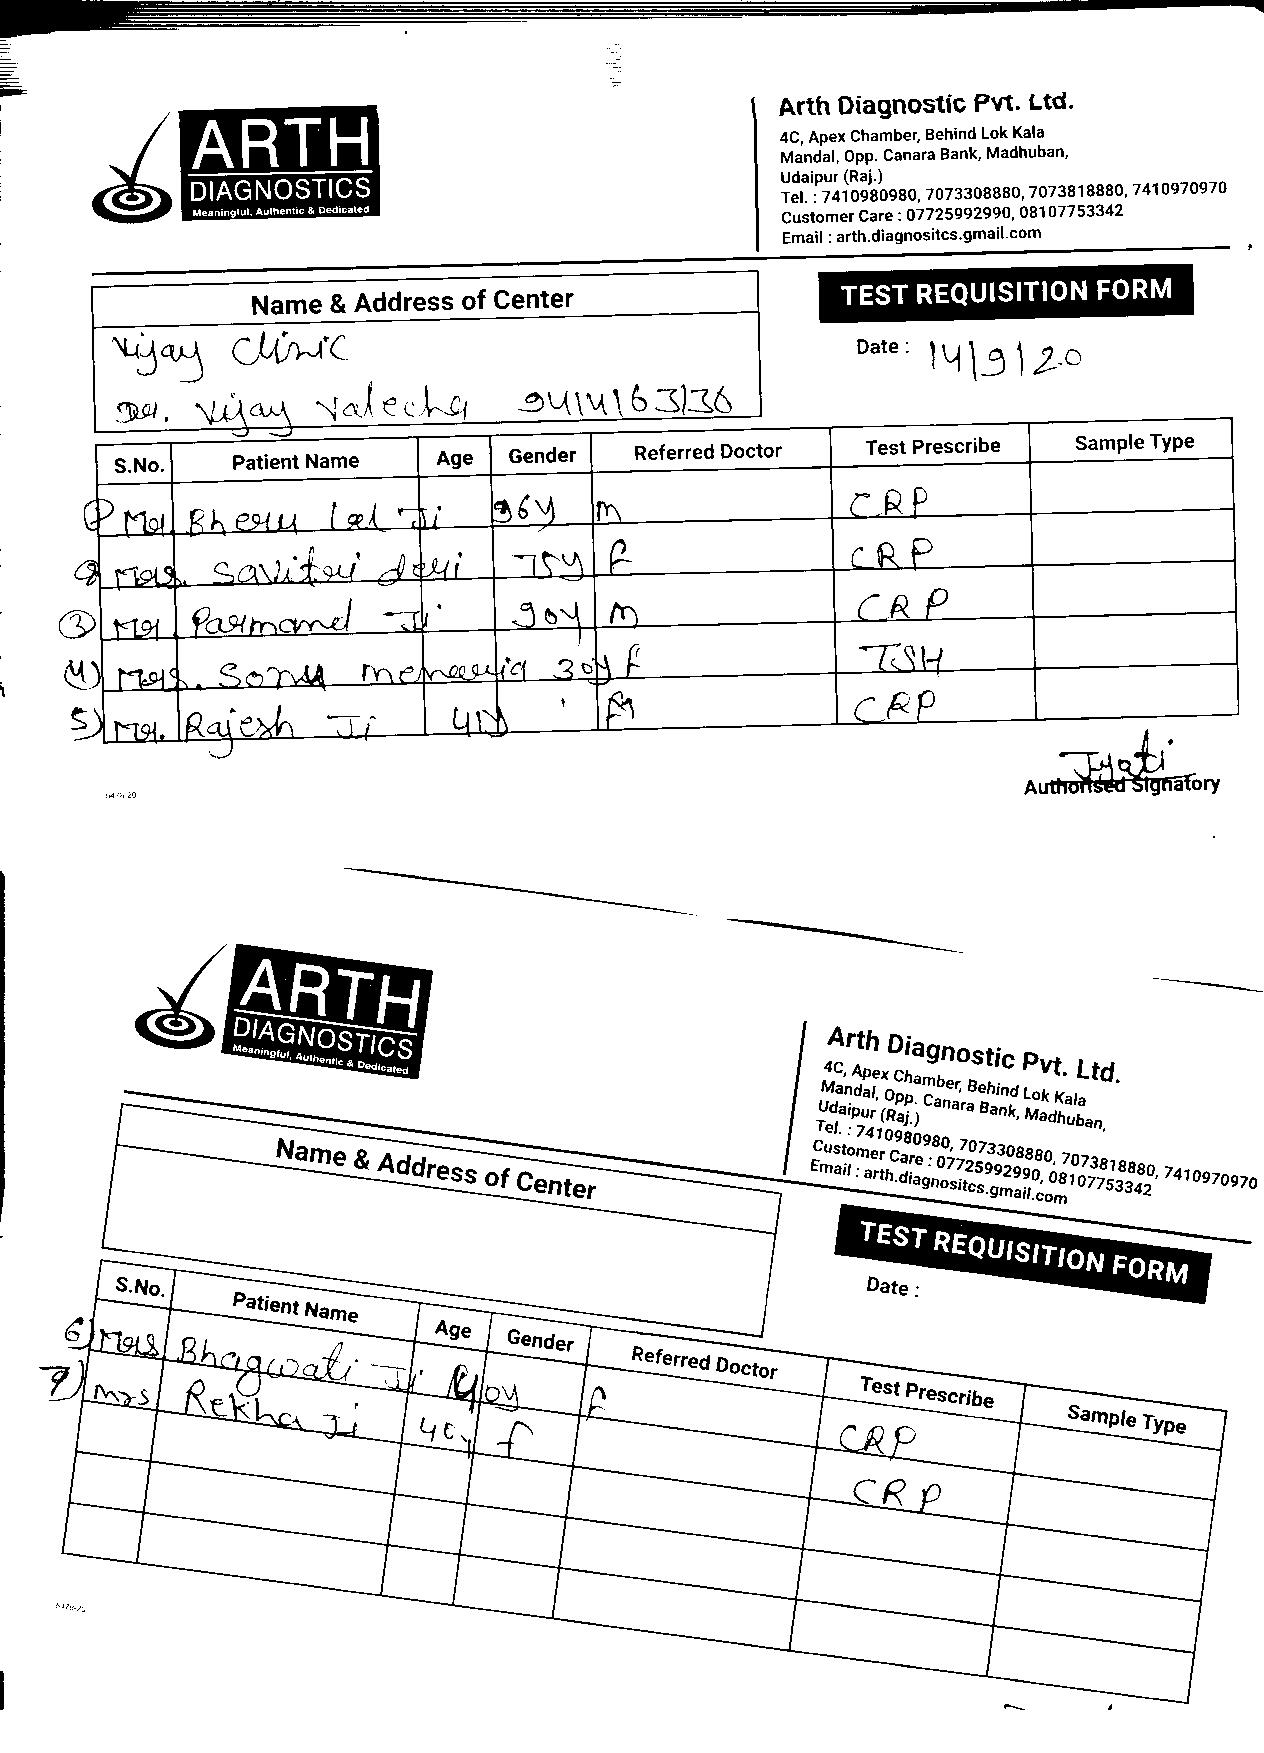 ARTH
DIAGNOSTICS
Meaningful, Authentic & Dedicated
Arth Diagnostic Pvt. Ltd.
4C, Apex Chamber, Behind Lok Kala
Mandal, Opp. Canara Bank, Madhuban,
Udaipur (Raj.)
Tel. : 7410980980, 7073308880, 7073818880, 7410970970
Customer Care : 07725992990, 08107753342
Email : arth.diagnositcs.gmail.com
Name & Address of Center
TEST REQUISITION FORM
Vijay Clinic
Date : 14/9/20
Dr. Vijay Valecha 9414163136
S.No. Patient Name Age Gender Referred Doctor Test Prescribe Sample Type
1) Mr. Bheru Lal Ji 36y m CRP
2) Mrs. Savitri devi 75y f CRP
3) Mr Parmand Ji 90y m CRP
4) Mrs. Sonu menaria 30y f TSH
5) Mr. Rajesh Ji M CRP
Jyoti
Authorised Signatory
ARTH
DIAGNOSTICS
Meaningful, Authentic & Dedicated
Arth Diagnostic Pvt. Ltd.
4C, Apex Chamber, Behind Lok Kala
Mandal, Opp. Canara Bank, Madhuban,
Udaipur (Raj.)
Tel. : 7410980980, 7073308880, 7073818880, 7410970970
Customer Care : 07725992990, 08107753342
Email : arth.diagnositcs.gmail.com
Name & Address of Center
TEST REQUISITION FORM
Date :
S.No. Patient Name Age Gender Referred Doctor Test Prescribe Sample Type
6) Mrs Bhagwati Ji 40y f CRP
7) Mrs Rekha Ji 40y f CRP